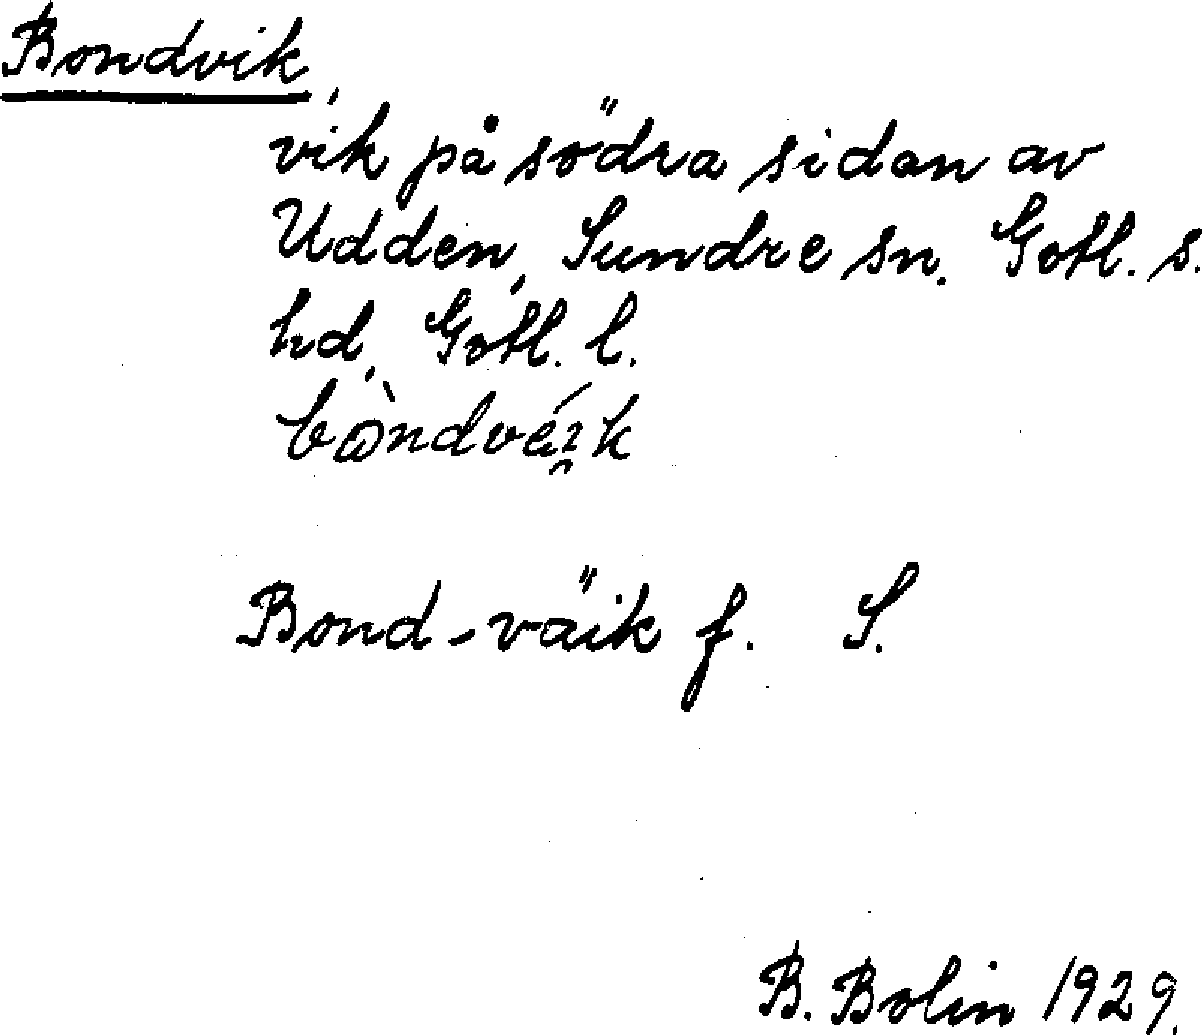 Bondvik,
vik på södra sidan av
Udden, Sundre sn. Gotl. s.
hd, Gotl. l.
Bond-väik f. S.
B. Bolin 1929.